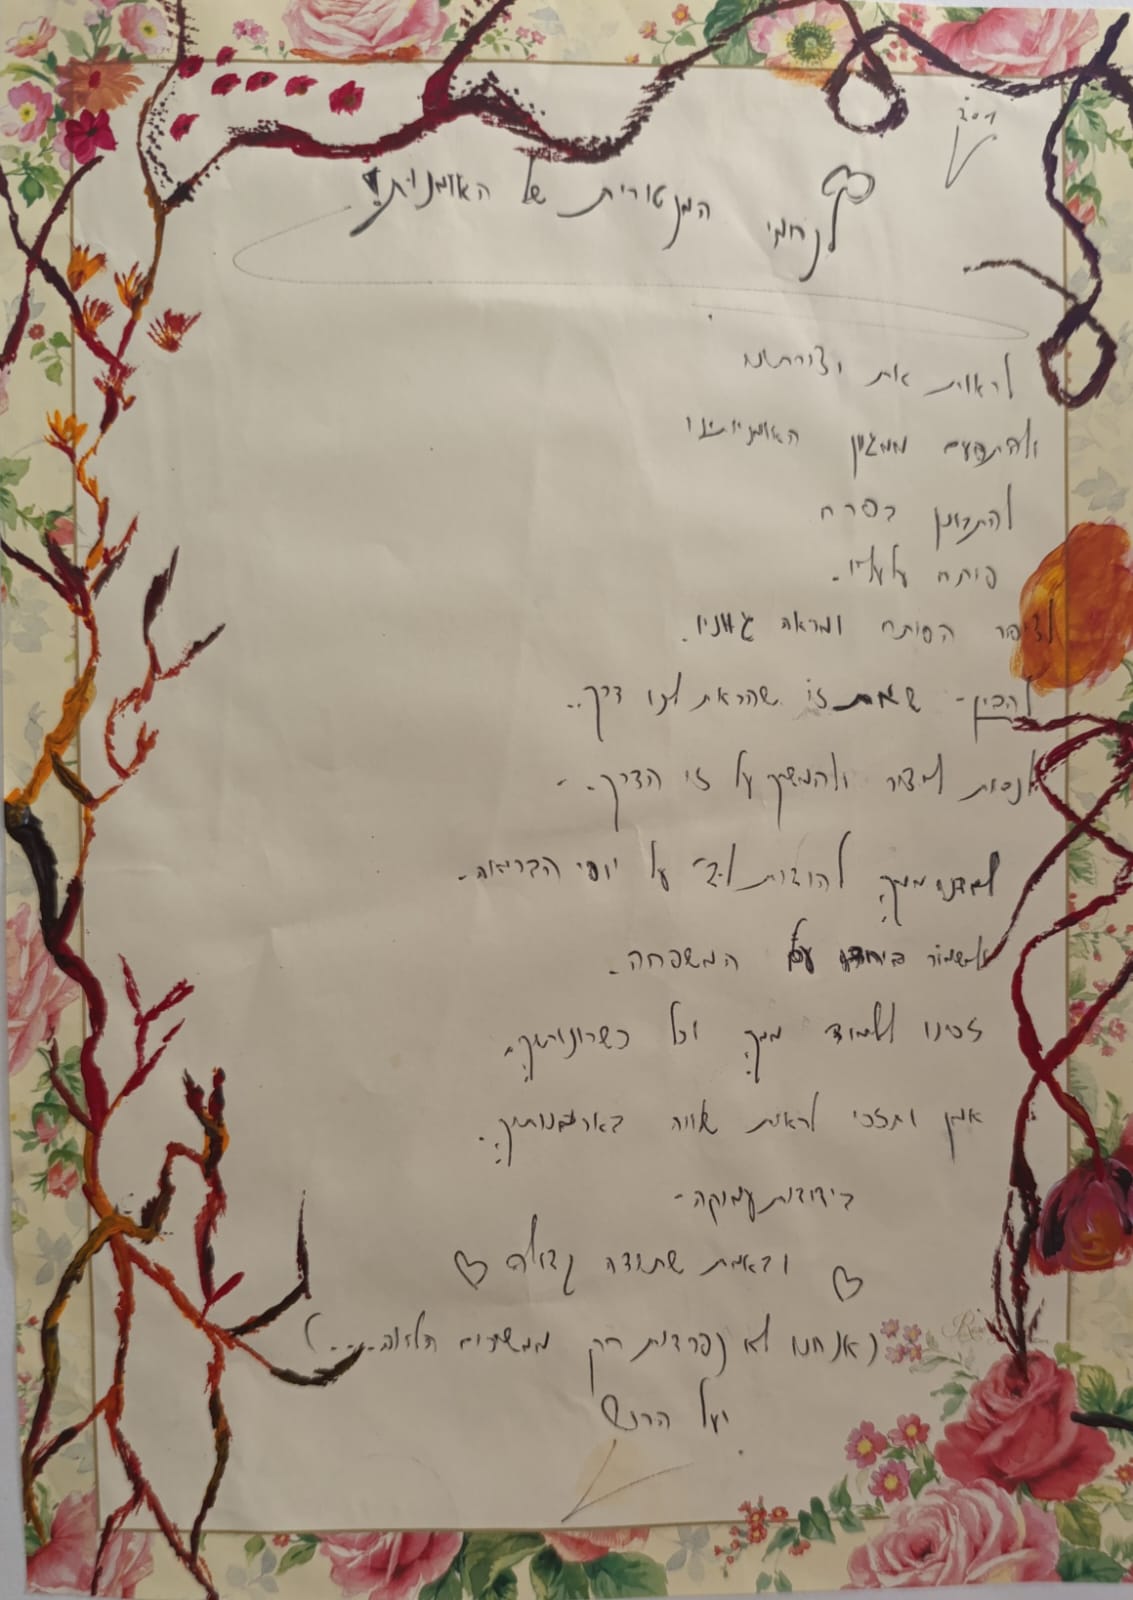 בס"ד
לנחמי המנטורית של האומנות!
לראות את יצירותינו
ולהתפעם ממגוון האומנויותינו
להתבונן בפרח
פותח עלעליו.
לציפור הפותח ומראה גווניו.
להבין - שאת זו שהראת לנו דרך..
לנסות לצייר ולהמשיך על זו הדרך..
למדנו ממך להודות לה' על יופי הבריאה.
ולשמור ביחד על המשפחה.
זכינו ללמוד ממך וכל כשרונותיך.
אמן ותזכי לראות שווה באומנותיך.
בידידות עמוקה-
ובאמת שתודה גדולה
(אנחנו לא נפרדות רק ממשיכים הלאה....)
יעל הרוש